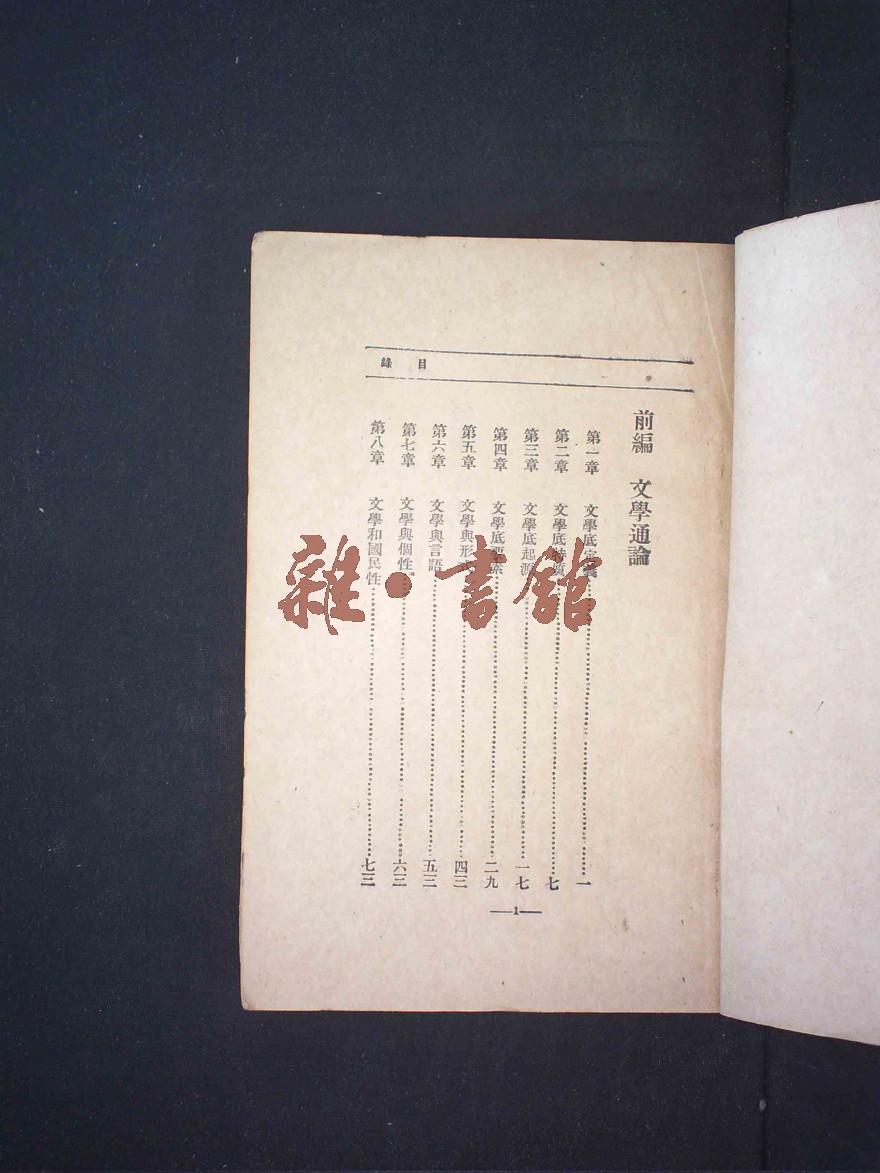 目錄
前編 文學通論
第一章 文學底定義 一
第二章 文學底特質 七
第三章 文學底起源 一七
第四章 文學底要素 二九
第五章 文學與形式 四三
第六章 文學與言語 五三
第七章 文學與個性 六三
第八章 文學和國民性 七三
—1—
雜·書館